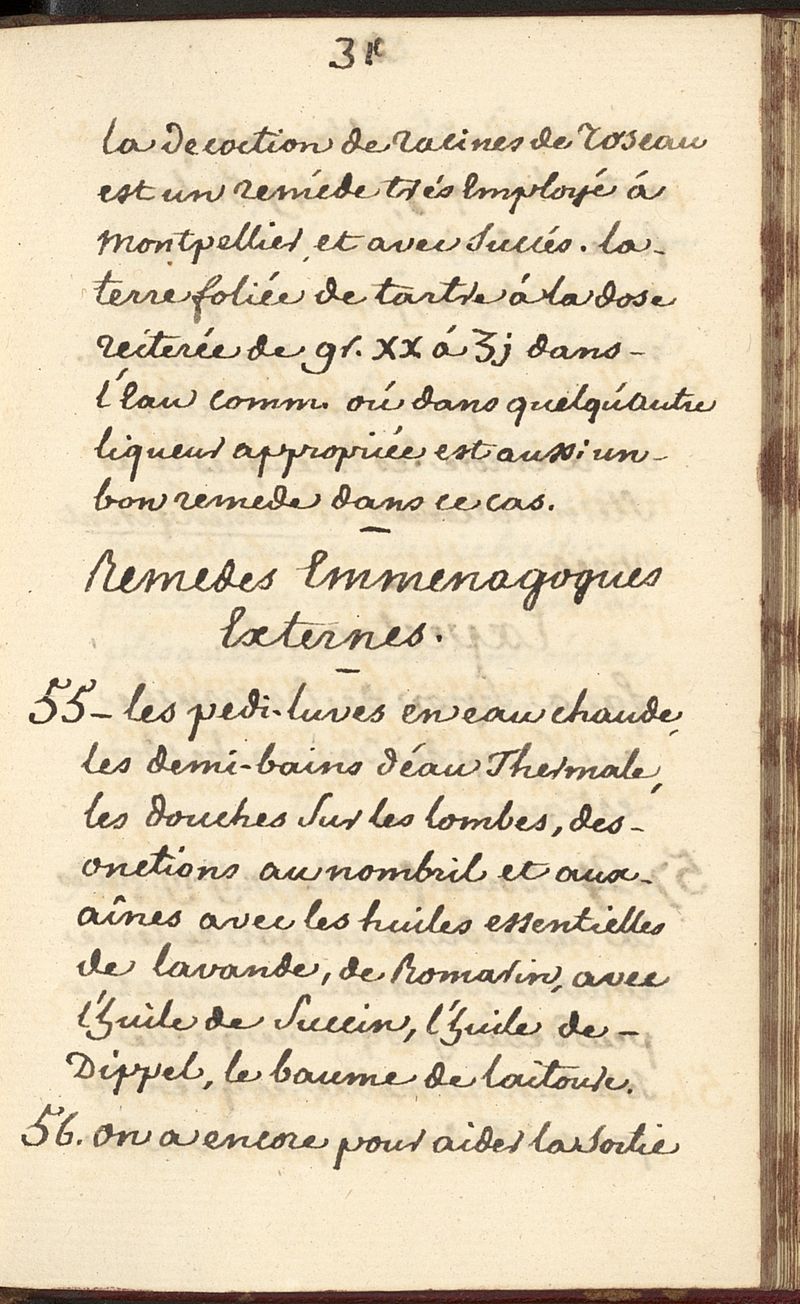 31
la decoction de racines de roseau
est un reméde trés Employé á
montpellier, et avec Succés. la-
terre foliée de tartre á la dose
reiterée de gr. XX á Ʒj dans-
l'Eau comm. oú dans quelqu'autre
liqueur appropriée est aussi un-
bon remede dans ce cas.
Remedes Emmenagogues
Externes.
55- les pedi-luves en eau chaude,
les demi-bains d'éau Thermale,
les douches Sur les lombes, des-
onctions au nombril et aux-
aînes avec les huiles essentielles
de lavande, de Romarin, avec
l'huile de Succin, l'huile de-
Dippel, le baume de laitoure.
56. on a encore pour aider la Sortie